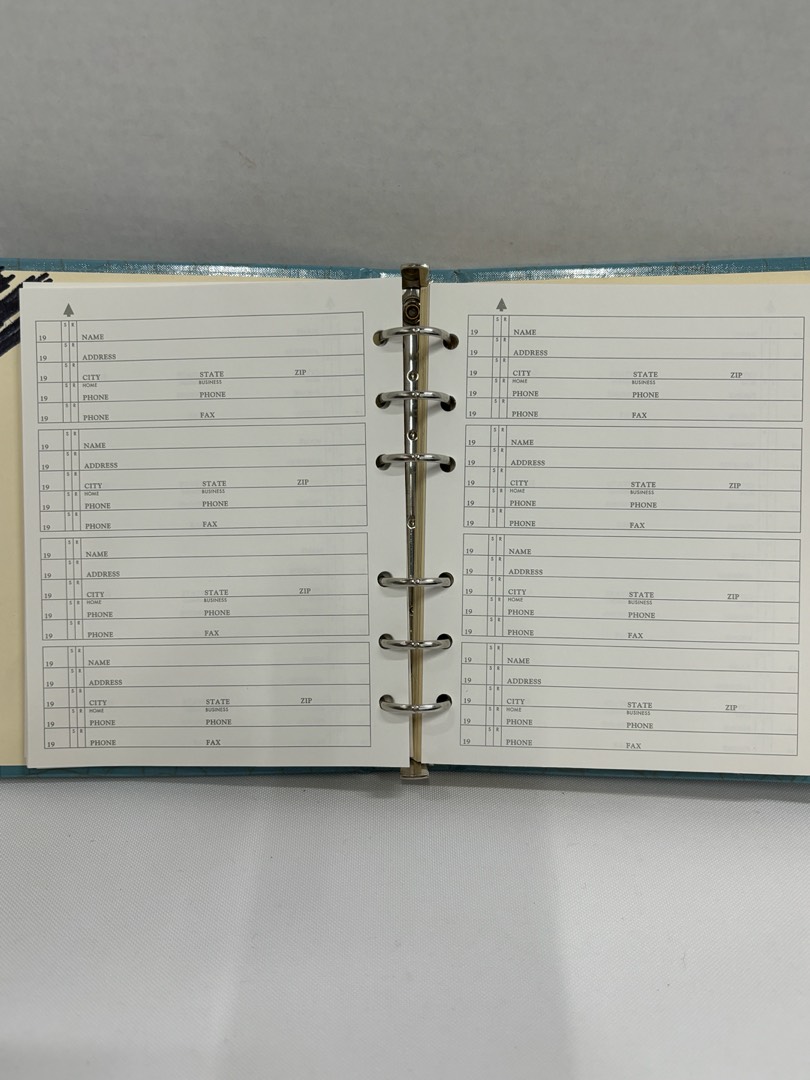 S R
19 NAME
S R
19 ADDRESS
S R
19 CITY STATE ZIP
S R HOME BUSINESS
19 PHONE PHONE
S R
19 PHONE FAX
S R
19 NAME
S R
19 ADDRESS
S R
19 CITY STATE ZIP
S R HOME BUSINESS
19 PHONE PHONE
S R
19 PHONE FAX
S R
19 NAME
S R
19 ADDRESS
S R
19 CITY STATE ZIP
S R HOME BUSINESS
19 PHONE PHONE
S R
19 PHONE FAX
S R
19 NAME
S R
19 ADDRESS
S R
19 CITY STATE ZIP
S R HOME BUSINESS
19 PHONE PHONE
S R
19 PHONE FAX
S R
19 NAME
S R
19 ADDRESS
S R
19 CITY STATE ZIP
S R HOME BUSINESS
19 PHONE PHONE
S R
19 PHONE FAX
S R
19 NAME
S R
19 ADDRESS
S R
19 CITY STATE ZIP
S R HOME BUSINESS
19 PHONE PHONE
S R
19 PHONE FAX
S R
19 NAME
S R
19 ADDRESS
S R
19 CITY STATE ZIP
S R HOME BUSINESS
19 PHONE PHONE
S R
19 PHONE FAX
S R
19 NAME
S R
19 ADDRESS
S R
19 CITY STATE ZIP
S R HOME BUSINESS
19 PHONE PHONE
S R
19 PHONE FAX